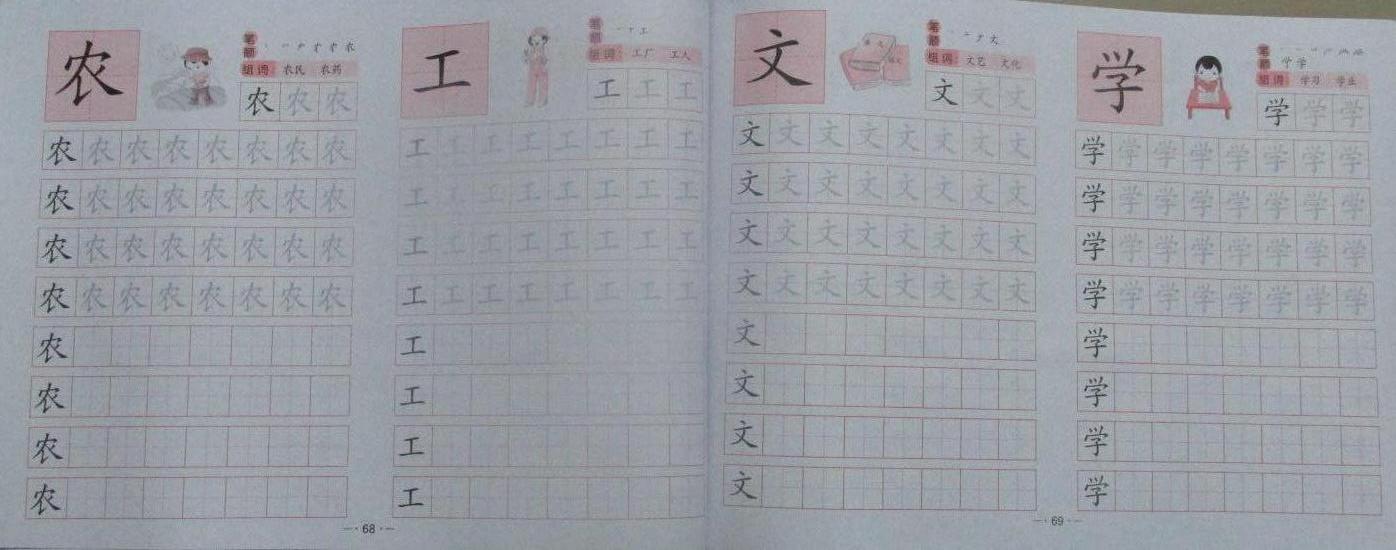 农
笔顺
组词 农民 农药
农 农 农
农 农 农 农 农 农 农 农
农 农 农 农 农 农 农 农
农 农 农 农 农 农 农 农
农 农 农 农 农 农 农 农
农
农
农
农
工
笔顺 一 丅 工
组词 工厂 工人
工 工 工
工 工 工 工 工 工 工 工
工 工 工 工 工 工 工 工
工 工 工 工 工 工 工 工
工 工 工 工 工 工 工 工
工
工
工
工
68
文
笔顺 丶 亠 ナ 文
组词 文艺 文化
文 文 文
文 文 文 文 文 文 文 文
文 文 文 文 文 文 文 文
文 文 文 文 文 文 文 文
文 文 文 文 文 文 文 文
文
文
文
文
学
笔顺
学 学
组词 学习 学生
学 学 学
学 学 学 学 学 学 学 学
学 学 学 学 学 学 学 学
学 学 学 学 学 学 学 学
学 学 学 学 学 学 学 学
学
学
学
学
69